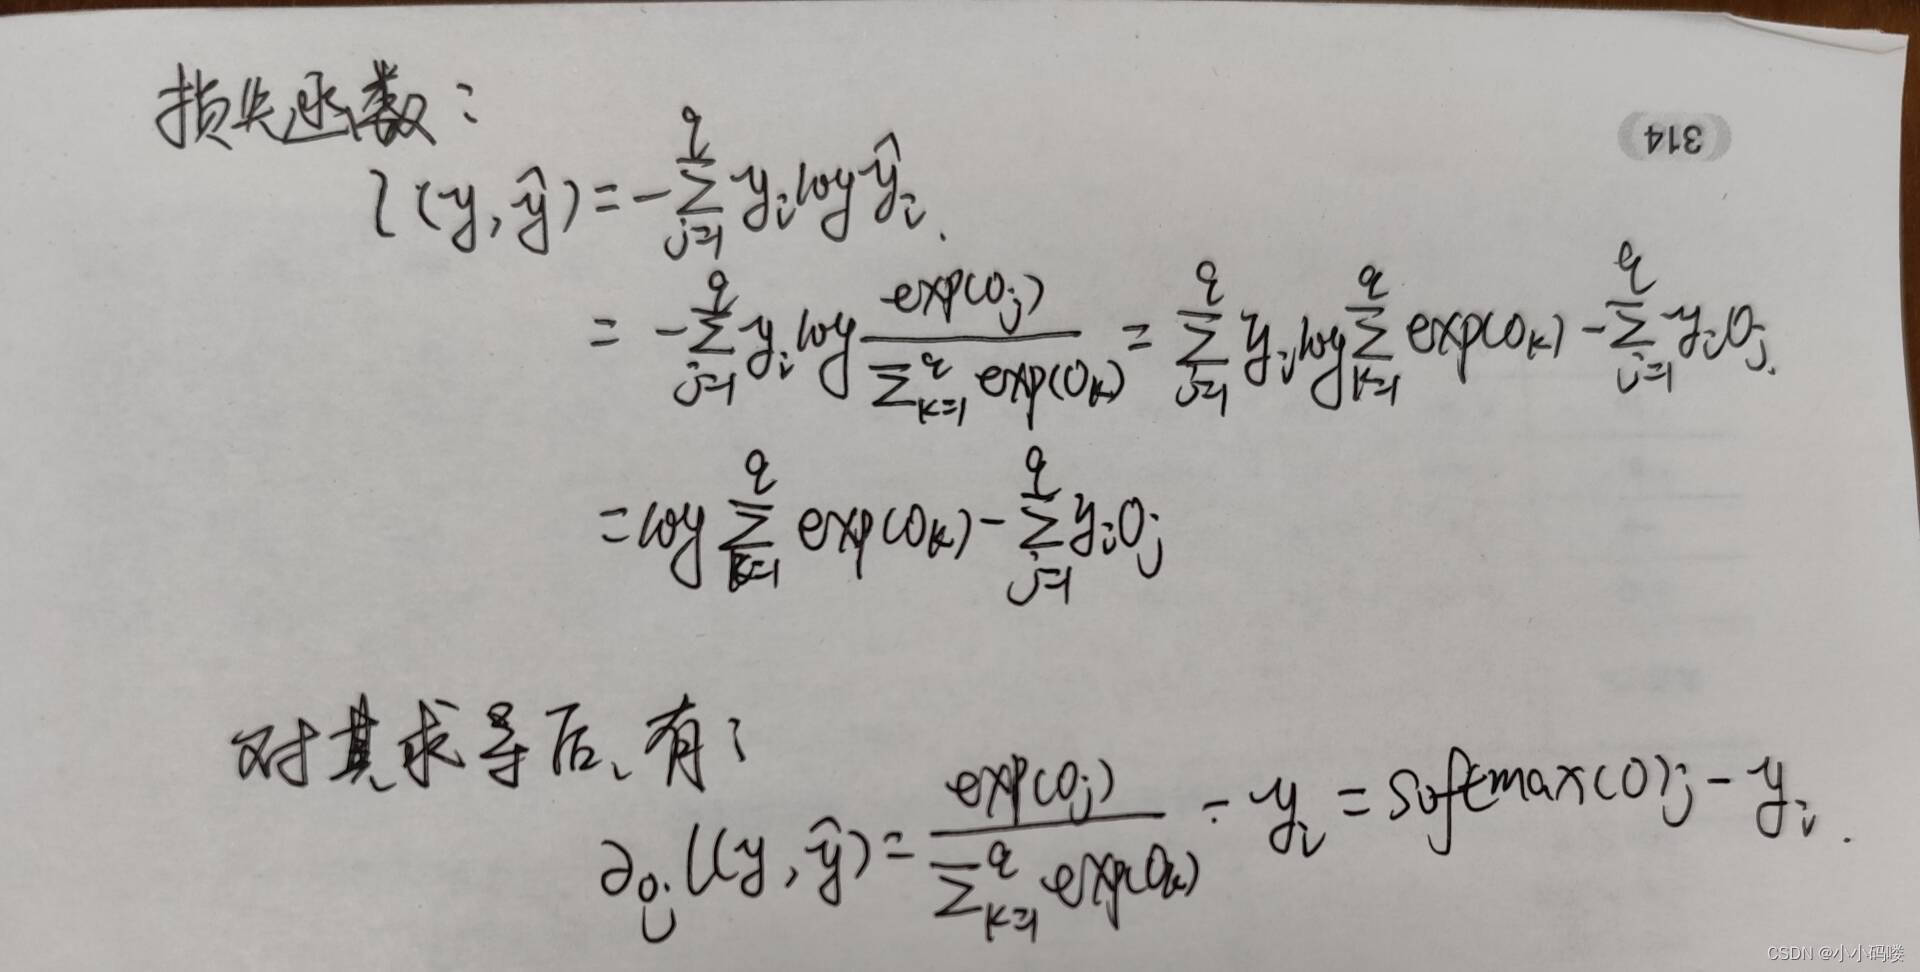 损失函数:
314
l(y,ŷ)=-∑_{j=1}^{q} y_i log ŷ_i.
= -∑_{j=1}^{q} y_i log \frac{exp(o_j)}{∑_{k=1}^{q} exp(o_k)} = ∑_{j=1}^{q} y_i log ∑_{k=1}^{q} exp(o_k) - ∑_{j=1}^{q} y_i o_j.
= log ∑_{k=1}^{q} exp(o_k) - ∑_{j=1}^{q} y_i o_j
对其求导后、有:
∂_{o_j} l(y,ŷ) = \frac{exp(o_j)}{∑_{k=1}^{q} exp(o_k)} - y_i = softmax(o)_j - y_i.
CSDN @小小码喽